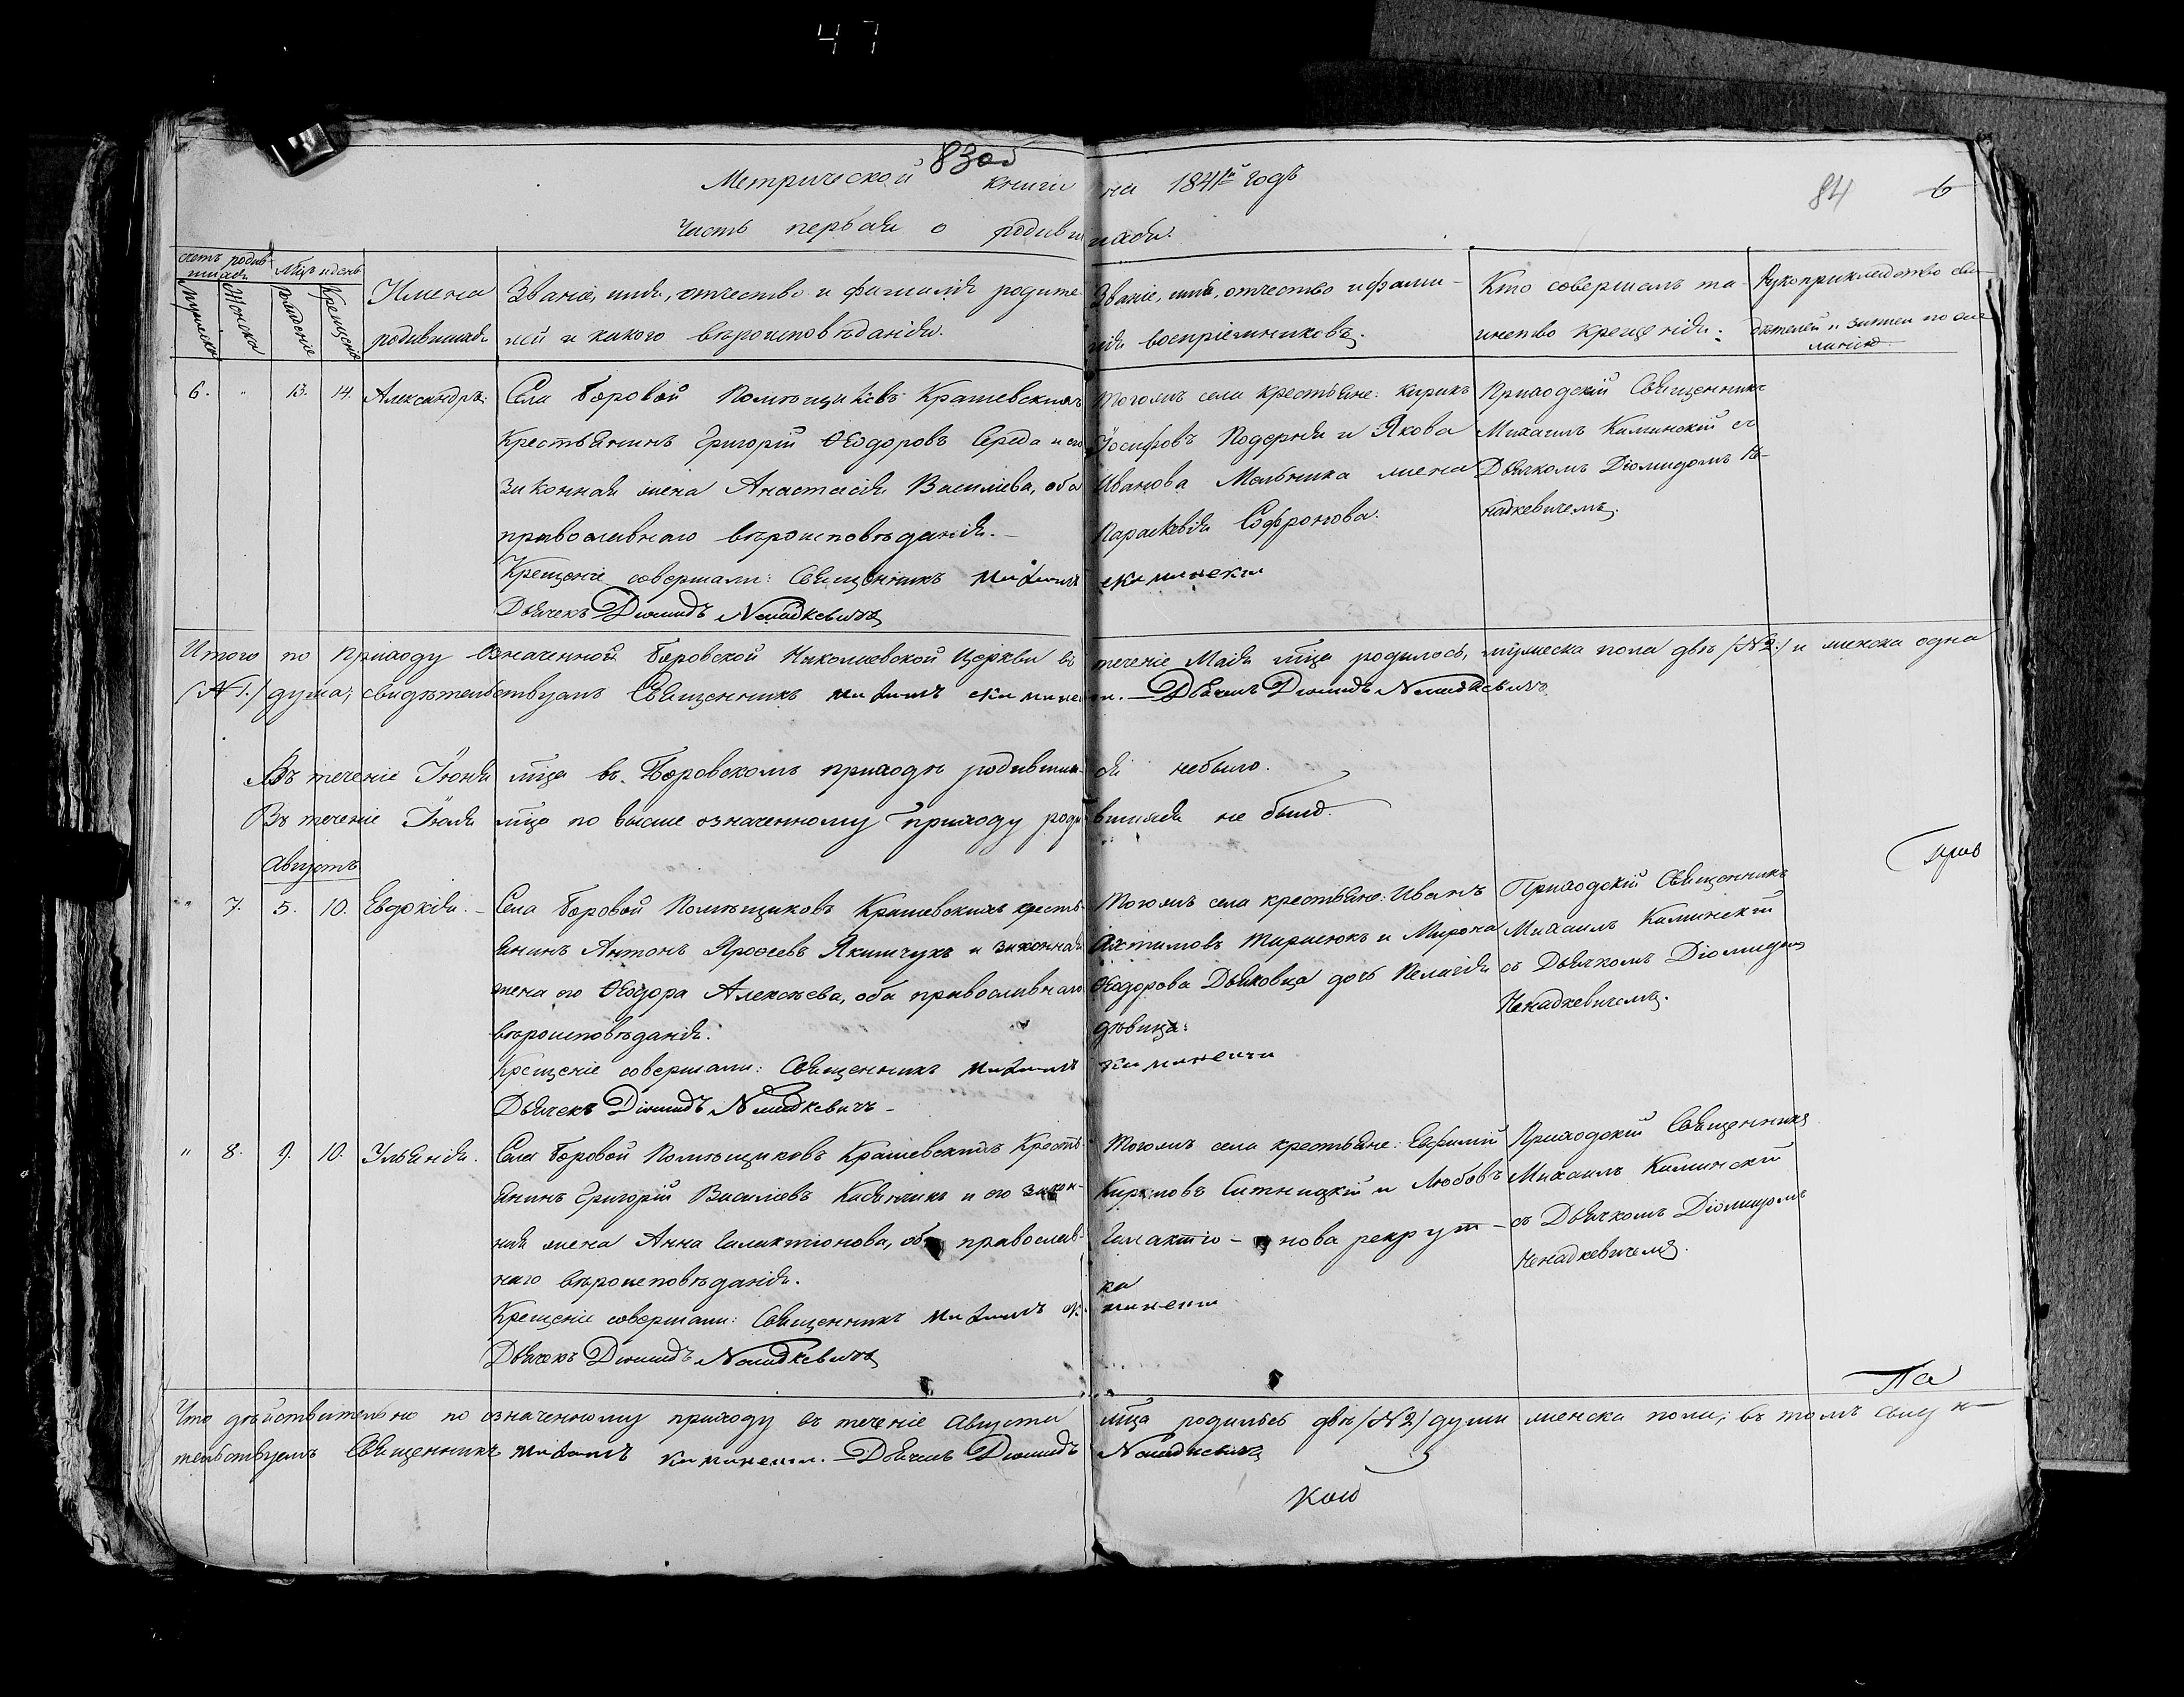 47
83об
Метрической книги на 1841й годъ
84 6
Часть первая о родившихся.
счетъ родившихся
Мца и день
Мужеска
Женска
рожденіе
Крещенія
Имена родившихся
Званіе, имя, отчество и фамилія родителей и какого вѣроисповѣданія.
Званіе, имя, отчество и фамилія воспріемниковъ.
Кто совершалъ таинство крещенія.
Рукоприкладство свидѣтелей о записи по желанію
6. " 13. 14. Александръ.
Села Боровой Помѣщиковъ Крашевскихъ
Крестьянинъ Григорій Ѳеодоровъ Середа и его
законная жена Анастасія Василіева, оба
православнаго вѣроисповѣданія.—
Тогожъ села крестьяне: Кирикъ
Іосифовъ Подерня и Якова
Иванова Мельника жена
Параскѣвія Софронова.
Приходскій Священникъ
Михаилъ Каминскій съ
Дьячкомъ Діомидомъ Не-
надкевичемъ.
Крещеніе совершали: Священникъ Михаилъ Каминскій
Дьячекъ Діомидъ Ненадкевичъ
Итого по приходу означенной Боровской Николаевской Церкви въ теченіе Маія мца родилось, мужеска пола двѣ /№2./ и женска одна
/№1./ душа, свидѣтельствуемъ Священникъ Михаилъ Каминскій.— Дьячекъ Діомидъ Ненадкевичъ.
Въ теченіе Іюня мца въ Боровскомъ приходѣ родившихся небыло.
Въ теченіе Іюля мца по выше означенному приходу родившихся не было.
Августъ
" 7. 5. 10. Евдокія.—
Села Боровой Помѣщиковъ Крашевскихъ кресть-
янинъ Антонъ Яроѳеевъ Якимчукъ и законная
жена его Ѳеодора Алексѣева, оба православнаго
вѣроисповѣданія.
Тогожъ села крестьяне: Иванъ
Тарасюкъ и Мирона
Ѳеодорова Дьяковца дочь Пелагія
дѣвица.
Приходскій Священникъ
Михаилъ Каминскій
съ Дьячкомъ Діомидомъ
Ненадкевичемъ.
Крещеніе совершали: Священникъ Михаилъ Каминскій
Дьячекъ Діомидъ Ненадкевичъ—
" 8. 9. 10. Ульянія.
Села Боровой Помѣщиковъ Крашевскихъ Кресть-
янинъ Григорій Василіевъ и его закон-
ная жена Анна Галактіонова, оба православ-
наго вѣроисповѣданія.
Тогожъ села крестьяне: Евфимій
Кириловъ Ситницкій и Любовь
Галактіо-нова рекрут-
ка
Приходскій Священникъ
Михаилъ Каминскій
съ Дьячкомъ Діомидомъ
Ненадкевичемъ.
Крещеніе совершали: Священникъ Михаилъ Каминскій
Дьячекъ Діомидъ Ненадкевичъ
Что дѣйствительно по означенному приходу въ теченіе Августа мца родилось двѣ /№2/ души женска пола, въ томъ
тельствуемъ Священникъ Михаилъ Каминскій.— Дьячекъ Діомидъ Ненадкевичъ